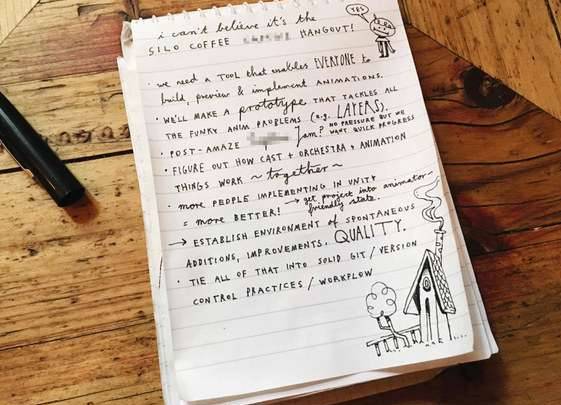 i can't believe it's the
SILO COFFEE HANGOUT!
YES
· WE NEED A TOOL THAT ENABLES EVERYONE to
build, preview & implement ANIMATIONS.
· WE'LL MAKE A prototype THAT TACKLES ALL
THE FUNKY ANIM PROBLEMS (e.g. LAYERS).
· POST-AMAZE Jam? NO PRESSURE BUT WE
WANT QUICK PROGRESS
· FIGURE OUT HOW CAST + ORCHESTRA + ANIMATION
THINGS WORK ~ together ~
· MORE PEOPLE IMPLEMENTING IN UNITY
= MORE BETTER! → get project into animator-
friendly state.
→ ESTABLISH ENVIRONMENT OF SPONTANEOUS
ADDITIONS, IMPROVEMENTS. QUALITY.
· TIE ALL OF THAT INTO SOLID GIT/VERSION
CONTROL PRACTICES/WORKFLOW